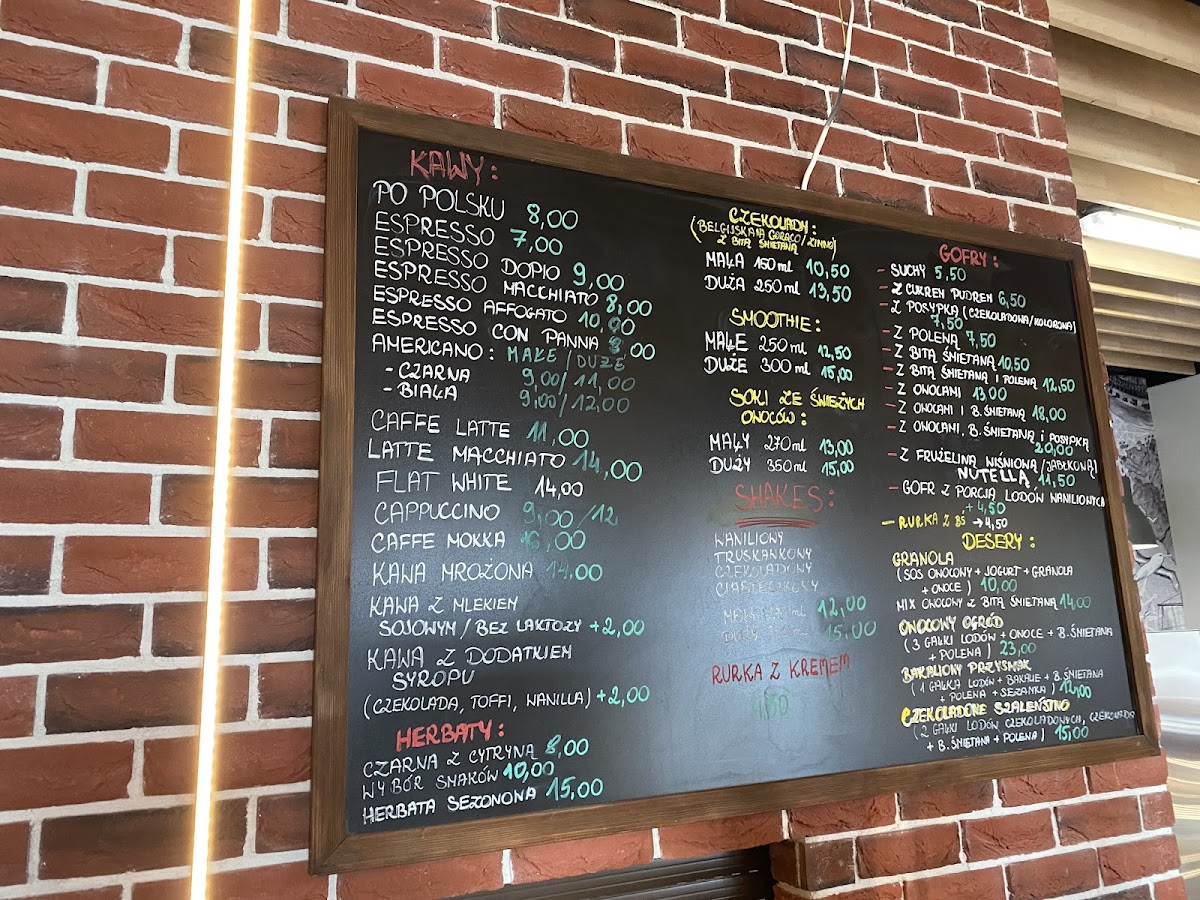 KAWY:
PO POLSKU 8,00
ESPRESSO 7,00
ESPRESSO DOPIO 9,00
ESPRESSO MACCHIATO 8,00
ESPRESSO AFFOGATO 10,00
ESPRESSO CON PANNA 8,00
AMERICANO: MAŁE / DUŻE
- CZARNA 9,00 / 11,00
- BIAŁA 9,00 / 12,00
CAFFE LATTE 11,00
LATTE MACCHIATO 14,00
FLAT WHITE 14,00
CAPPUCCINO 9,00 / 12
CAFFE MOKKA ,00
KAWA MROŻONA 14.00
KAWA Z MLEKIEM
SOJOWYM / BEZ LAKTOZY +2,00
KAWA Z DODATKIEM
SYROPU
(CZEKOLADA, TOFFI, WANILLA) +2,00
HERBATY:
CZARNA Z CYTRYNĄ 8,00
WYBÓR SMAKÓW 10,00
HERBATA SEZONOWA 15,00
CZEKOLADY:
(BELGIJSKA NA GORĄCO / ZIMNO)
Z BITĄ ŚMIETANĄ
MAŁA 150 ml 10,50
DUŻA 250 ml 13,50
SMOOTHIE:
MAŁE 250 ml 12,50
DUŻE 300 ml 15,00
SOKI ZE ŚWIEŻYCH
OWOCÓW:
MAŁY 270 ml 13,00
DUŻY 350 ml 15,00
SHAKES:
WANILIOWY
TRUSKAWKOWY
CZEKOLADOWY
CIASTECZKOWY
MAŁY ml 12,00
DUŻY ml 15.00
RURKA Z KREMEM
4,50
GOFRY:
- SUCHY 5,50
- Z CUKREM PUDREM 6,50
- Z POSYPKĄ (CZEKOLADOWA/KOLOROWA)
7,50
- Z POLEWĄ 7,50
- Z BITĄ ŚMIETANĄ 10,50
- Z BITĄ ŚMIETANĄ I POLEWĄ 12,50
- Z OWOCAMI 13,00
- Z OWOCAMI I B. ŚMIETANĄ 18,00
- Z OWOCAMI, B. ŚMIETANĄ I POSYPKĄ
20,00
- Z FRUŻELINĄ WIŚNIOWĄ / JABŁKOWĄ /
NUTELLĄ 11,50
- GOFR Z PORCJĄ LODÓW WANILIOWYCH
+ 4,50
- RURKA Z BŚ → 4,50
DESERY:
GRANOLA
(SOS OWOCOWY + JOGURT + GRANOLA
+ OWOCE) 10,00
MIX OWOCOWY Z BITĄ ŚMIETANĄ 14,00
OWOCOWY OGRÓD
(3 GAŁKI LODÓW + OWOCE + B. ŚMIETANA
+ POLEWA) 23,00
BAKALIOWY PRZYSMAK
(1 GAŁKA LODÓW + BAKALIE + B. ŚMIETANA
+ POLEWA + SEZAMKA) 12,00
CZEKOLADOWE SZALEŃSTWO
(2 GAŁKI LODÓW CZEKOLADOWYCH, CZEKOLADA
+ B. ŚMIETANA + POLEWA) 15,00